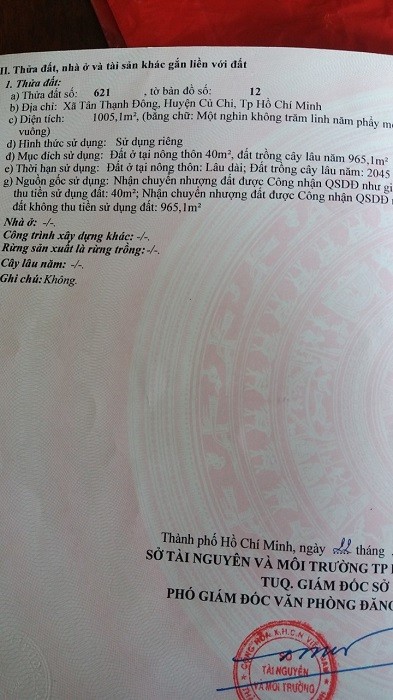 II. Thửa đất, nhà ở và tài sản khác gắn liền với đất
1. Thửa đất:
a) Thửa đất số: 621 , tờ bản đồ số: 12
b) Địa chỉ: Xã Tân Thạnh Đông, Huyện Củ Chi, Tp Hồ Chí Minh
c) Diện tích: 1005,1m², (bằng chữ: Một nghìn không trăm linh năm phẩy mộ
vuông)
d) Hình thức sử dụng: Sử dụng riêng
đ) Mục đích sử dụng: Đất ở tại nông thôn 40m², đất trồng cây lâu năm 965,1m²
e) Thời hạn sử dụng: Đất ở tại nông thôn: Lâu dài; Đất trồng cây lâu năm: 2045
g) Nguồn gốc sử dụng: Nhận chuyển nhượng đất được Công nhận QSDĐ như gi
thu tiền sử dụng đất: 40m²; Nhận chuyển nhượng đất được Công nhận QSDĐ
đất không thu tiền sử dụng đất: 965,1m²
Nhà ở: -/-.
Công trình xây dựng khác: -/-.
Rừng sản xuất là rừng trồng: -/-.
Cây lâu năm: -/-.
Ghi chú: Không.
Thành phố Hồ Chí Minh, ngày 22 tháng
SỞ TÀI NGUYÊN VÀ MÔI TRƯỜNG TP
TUQ. GIÁM ĐỐC SỞ
PHÓ GIÁM ĐỐC VĂN PHÒNG ĐĂNG
CỘNG HÒA X.H.C.N VIỆT NAM
SỞ
TÀI NGUYÊN
VÀ MÔI TRƯỜNG